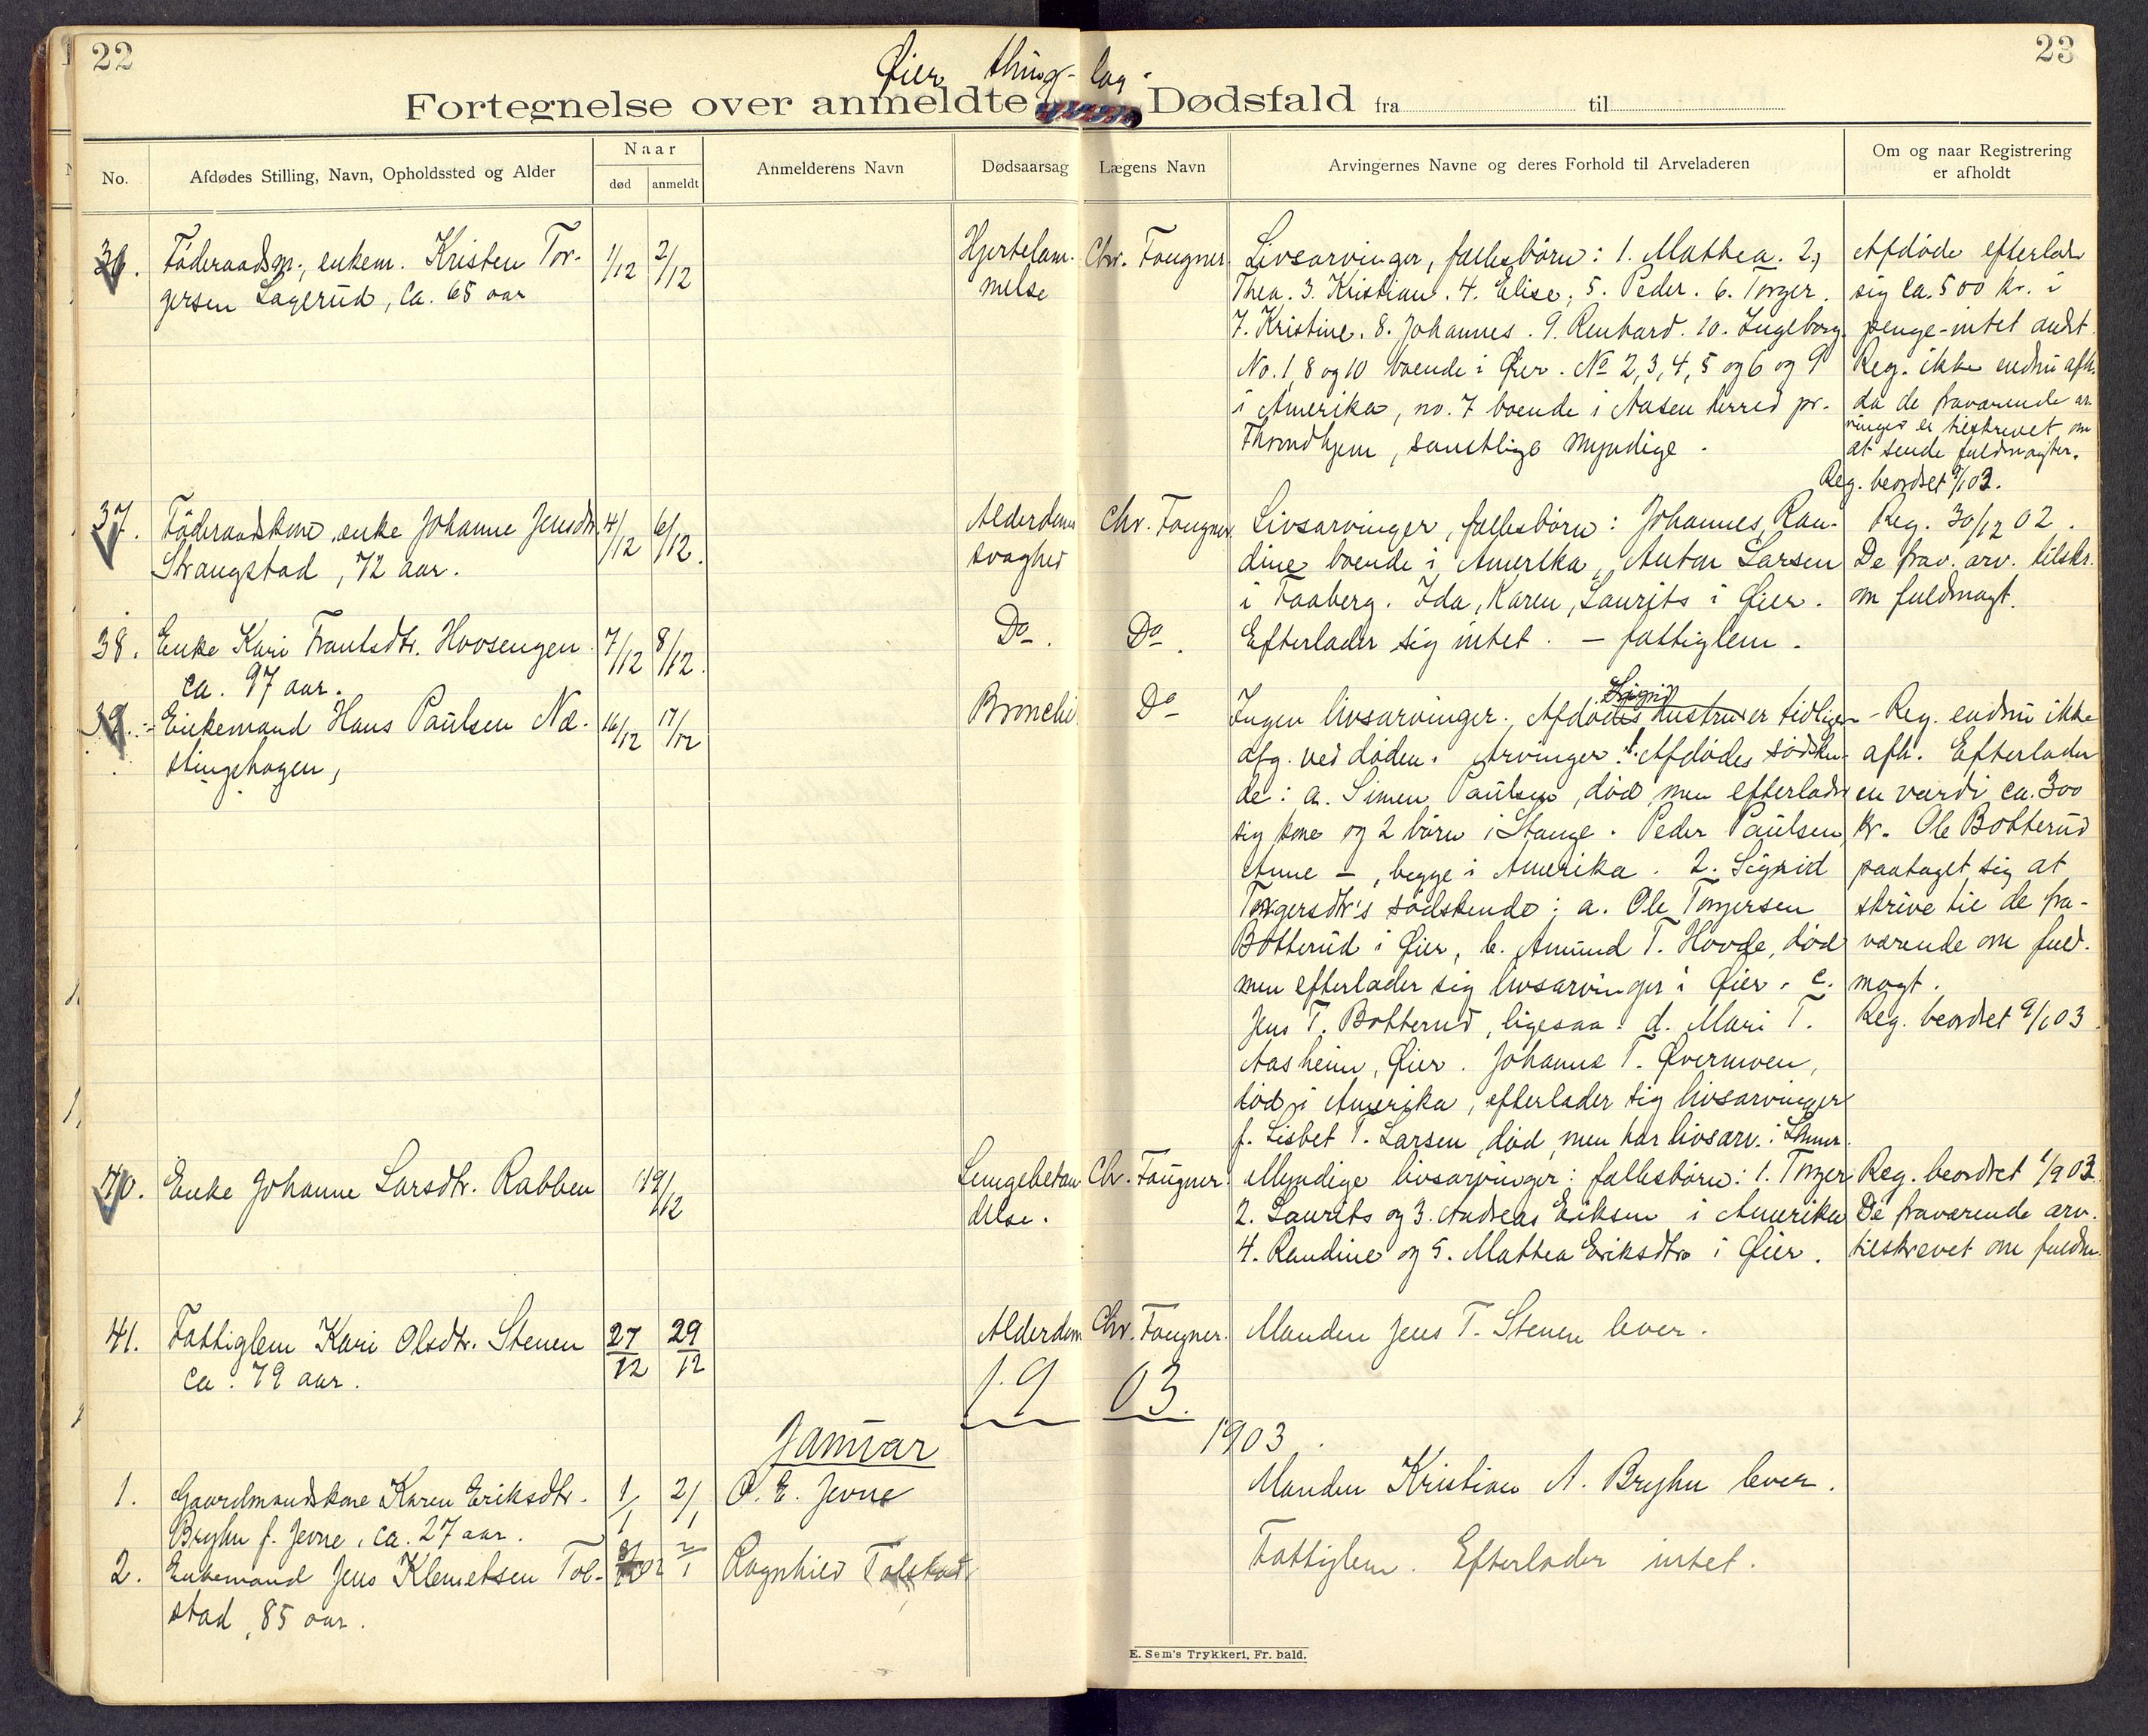 22
23
Øier thing-lag.
Fortegnelse over anmeldte Dødsfald fra til
No.
Afdødes Stilling, Navn, Opholdssted og Alder
Naar
død
anmeldt
Anmelderens Navn
Dødsaarsag
Lægens Navn
Arvingernes Navne og deres Forhold til Arveladeren
Om og naar Registrering
er afholdt
36.
Föderaadsm., enkem. Kristen Tor-
gersen Lagerud, ca. 65 aar
1/12
2/12
Hjertelam-
melse
Chr. Fougner.
Livsarvinger, fællesbörn: 1. Mathea. 2,
Thea. 3. Kristian. 4. Elise. 5. Peder. 6. Torger.
7. Kristine. 8. Johannes. 9. Renhard. 10. Ingeborg.
No. 1, 8 og 10 boende i Øier. No 2, 3, 4, 5 og 6 og 9
i Amerika, no. 7 boende i Aasen herred pr.
Throndhjem, samtlige myndige.
Afdöde efterlod
sig ca. 500 kr. i
penge - intet andet
Reg. ikke endnu afh.
da de fraværende ar-
vinger er tilskrevet om
at sende fuldmagter.
Reg. beordret 9/1 03.
37.
Föderaadskone, enke Johanne Jensdtr.
Strangstad, 72 aar.
4/12
6/12.
Alderdoms
svaghed
Chr. Fougner.
Livsarvinger, fællesbörn: Johannes, Ran-
dine boende i Amerika, Anton Larsen
i Faaberg. Ida, Karen, Laurits i Øier.
Reg. 30/12 02.
De frav. arv. tilskr.
om fuldmagt.
38.
Enke Kari Frantsdtr. Hoosengen
ca. 97 aar.
7/12
8/12.
Do.
Do.
Efterlader sig intet. - fattiglem.
39.
Enkemand Hans Paulsen Næ-
stingehagen,
16/12
17/12
Bronchi
Do
Sigrid
Ingen livsarvinger. Afdödes hustru er tidligere
afg. ved döden. Arvinger: 1. Afdödes södsken-
de: a. Simen Paulsen, död, men efterlader
sig kone og 2 börn i Stange. Peder Paulsen,
Anne -, begge i Amerika. 2. Sigrid
Torgersdtr's södskende: a. Ole Torgersen
Botterud i Øier, b. Amund T. Hovde, död
men efterlader sig livsarvinger i Øier. c.
Jens T. Botterud, ligesaa. d. Mari T.
Aasheim, Øier. Johanne T. Øvermoen,
död i Amerika, efterlader sig livsarvinger
f. Lisbet T. Larsen, död, men har livsarv. i
- Reg. endnu ikke
afh. Efterlader
en værdi ca. 300
kr. Ole Botterud
paataget sig at
skrive til de fra-
værende om fuld-
magt.
Reg. beordret 9/1 03.
40.
Enke Johanne Larsdtr. Rabben
19/12
Lungebetæn
delse.
Chr. Fougner.
Myndige livsarvinger: fællesbörn: 1. Torger
2. Laurits og 3. Andreas Eriksen i Amerika
4. Randine og 5. Mathea Eriksdtr i Øier.
Reg. beordret 1/9 03.
De fraværende arv.
tilskrevet om fuldm.
41.
Fattiglem Kari Olsdtr. Stenen
ca. 79 aar.
27/12
29/12
Alderdom
Chr. Fougner.
Manden Jens T. Stenen lever.
1903.
Januar
1903.
1.
Gaardmandskone Karen Eriksdtr.
Bryhn f. Jevne, ca. 27 aar.
1/1
2/1
O. E. Jevne
Manden Kristian A. Bryhn lever.
2.
Enkemand Jens Klemetsen Tol-
stad, 85 aar.
2/1
Ragnhild Tolstad
Fattiglem. Efterlader intet.
E. Sem's Trykkeri, Fr. hald.